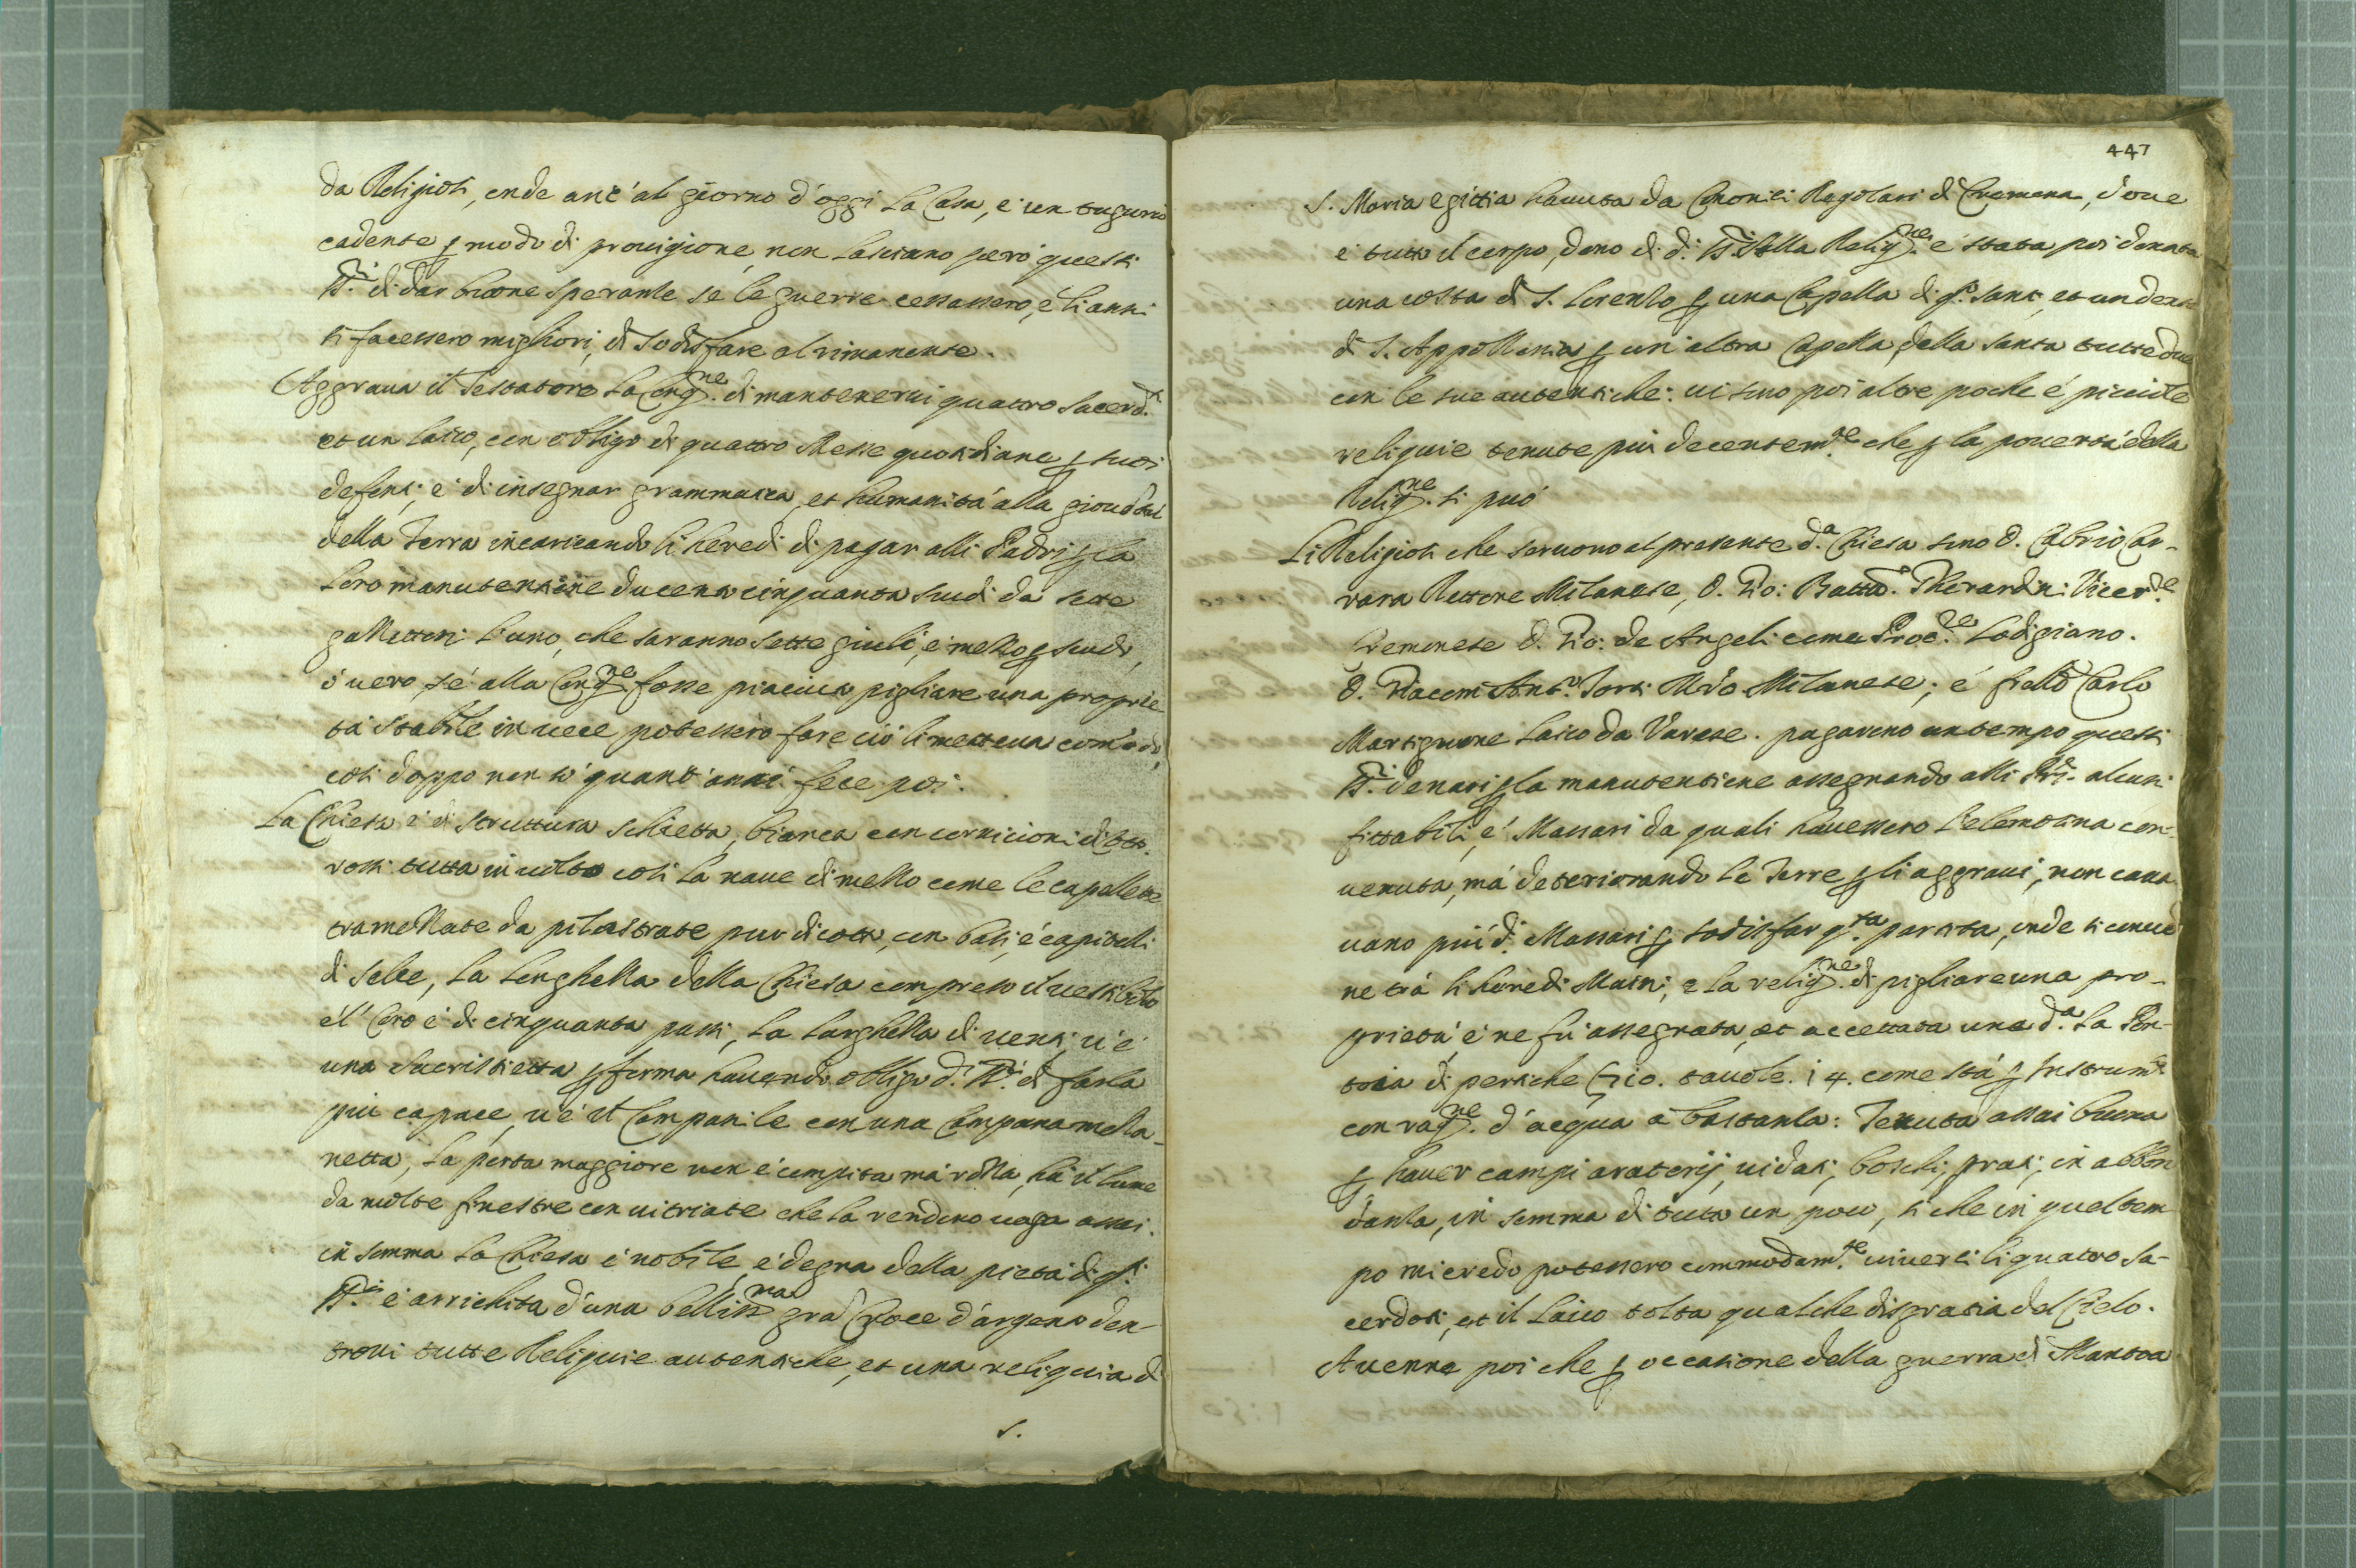 da Religiosi, onde anc' al giorno d'oggi la Casa, e' un tugurio
cadente p modo di provigione, non lasciano però questi
SS.ri di dar buone speranze se le guerre cessassero, e' li anni
si facessero migliori, di sodisfare al rimanente.
Aggrava il Testatore la Cong.ne di mantenervi quattro Sacerd.ti
et un laico, con obligo di quattro Messe quotidiane p suoi
defonti, e' di insegnar grammatica, et humanità alla gioventù
della Terra incaricando li heredi di pagar alli Padri p la
loro manutentione ducento cinquanta scudi da sette
l'uno, che saranno sette giulij, e' mezzo p scudo,
ò vero, se' alla Cong.ne fosse piaciuta pigliare una proprie
tà stabile in vece potessero fare ciò li metteva comodo,
così doppo non so' quant' anni fece poi.
La Chiesa e' di struttura schietta, bianca con cornicioni di cotto
rossi tutta in volto così la nave di mezzo come le capellette
tramezzate da pilastrate pur di cotto, con basi, e' capitelli
di selce, la longhezza della Chiesa compreso il vestibolo
e'l Coro e' di cinquanta passi, la larghezza di venti, v'e'
una Sacristietta p forma havendo obligo d.i SS.ri di farla
più capace, v'e' il Campanile con una Campana mezza-
netta, la porta maggiore non e' compita mà rozza, hà il lume
da molte finestre con vitriate che la rendono vaga assai.
in somma la Chiesa e' nobile, e' degna della pietà di q.ti
SS.ri e' arrichita d'una belliss.ma gra Croce d'argento den-
trovi tutte Reliquie autentiche, et una reliquia di
S.
447
S. Maria egittia havuta da Canonici Regolari di Cremona, dove
e' tutto il corpo, dono di d.i SS.ri alla Relig.ne e' stata poi donata
una costa di S. Lorenzo p una Capella di q.o santo, et un dente
di S. Appollonia p un' altra Capella della santa tutte due
con le sue autentiche: vi sono poi altre poche e' picciole
reliquie tenute più decentem.te che p la povertà della
Relig.ne si può
Li Religiosi che servono al presente d.a Chiesa sono D. Cabrio Car-
rara Rettore Milanese, D. Gio: Batta. Gherardini Vicer.e
Cremonese D. Gio: de Angeli come Proc.re Lodigiano.
D. Giacom' Ant.o Torti Mro Milanese, e' frello Carlo
Martignone laico da Varese. pagarono un tempo questi
SS.ri denari p la manutentione assegnando alli Pri. alcuni
fittabili, e' Massari da quali havessero l'elemosina con-
venuta, mà deteriorando le Terre p li aggravi, non cava
vano più d.i Massari p sodisfar q.ta partita, onde si conven
ne trà li heredi Maini, e la relig.ne di pigliare una pro-
prietà e' ne fù assegnata, et accettata una d.a la Pon-
toia di pertiche tavole. i4. come stà p Instrum.to
con rag.ne d'acqua à bastanza: Tenuta assai buona
p haver campi aratorij, vidati, boschi, prati, in abbon
danza, in somma di tutto un poco, si che in quel tem
po mi credo potessero commodam.te viverci li quattro Sa-
cerdoti, et il Laico tolta qualche disgratia del Cielo.
Avenne poi che p occasione della guerra di Mantoa